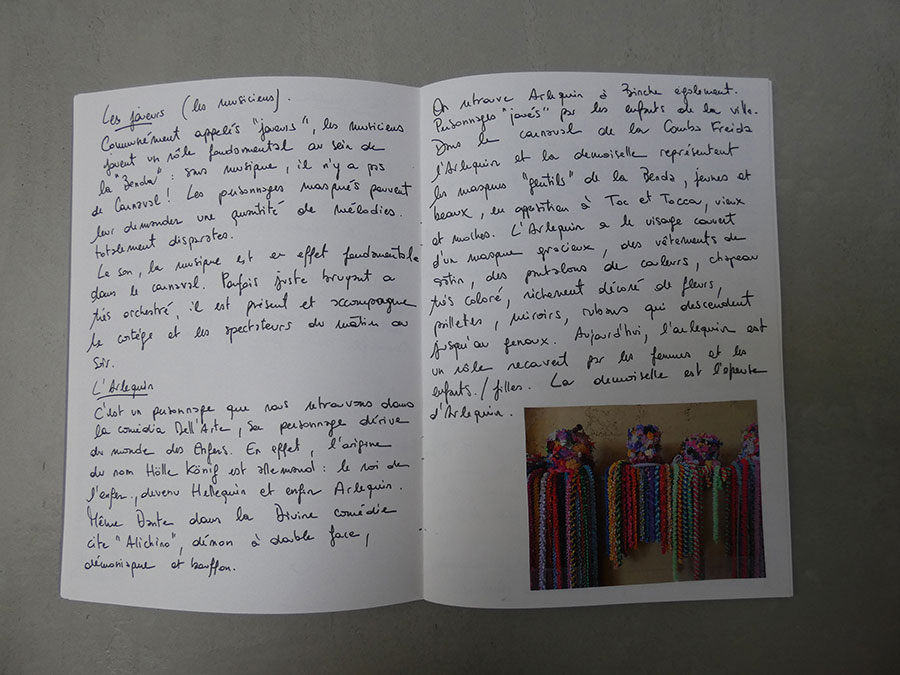 Les joueurs (les musiciens).
Communément appelés "joueurs", les musiciens
jouent un rôle fondamental au sein de
la "Benda" : sans musique, il n'y a pas
de Carnaval ! Les personnages masqués peuvent
leur demander une quantité de mélodies.
totalement disparates.
Le son, la musique est en effet fondamentale
dans le carnaval. Parfois juste bruyant a
très orchestré, il est présent et accompagne
le cortège et les spectateurs du matin au
soir.
L'Arlequin
C'est un personnage que nous retrouvons dans
la comédia Dell'Arte, son personnage dérive
du monde des Enfers. En effet, l'origine
du nom Hölle König est allemand : le roi de
l'enfer, devenu Hellequin et enfin Arlequin.
Même Dante dans la Divine comédie
cite "Alichino", démon à double face,
démoniaque et bouffon.
On retrouve Arlequin à Binche également.
Personnages "joués" par les enfants de la ville.
Dans le carnaval de la Comba Freida
l'Arlequin et la demoiselle représentent
les masques "gentils" de la Benda, jeunes et
beaux, en opposition à Toc et Tocca, vieux
et moches. L'Arlequin a le visage couvert
d'un masque gracieux, des vêtements de
satin, des pantalons de couleurs, chapeau
très coloré, richement décoré de fleurs,
paillettes, miroirs, rubans qui descendent
jusqu'au genoux. Aujourd'hui, l'arlequin est
un rôle recouvert par les femmes et les
enfants/filles. La demoiselle est l'épouse
d'Arlequin.